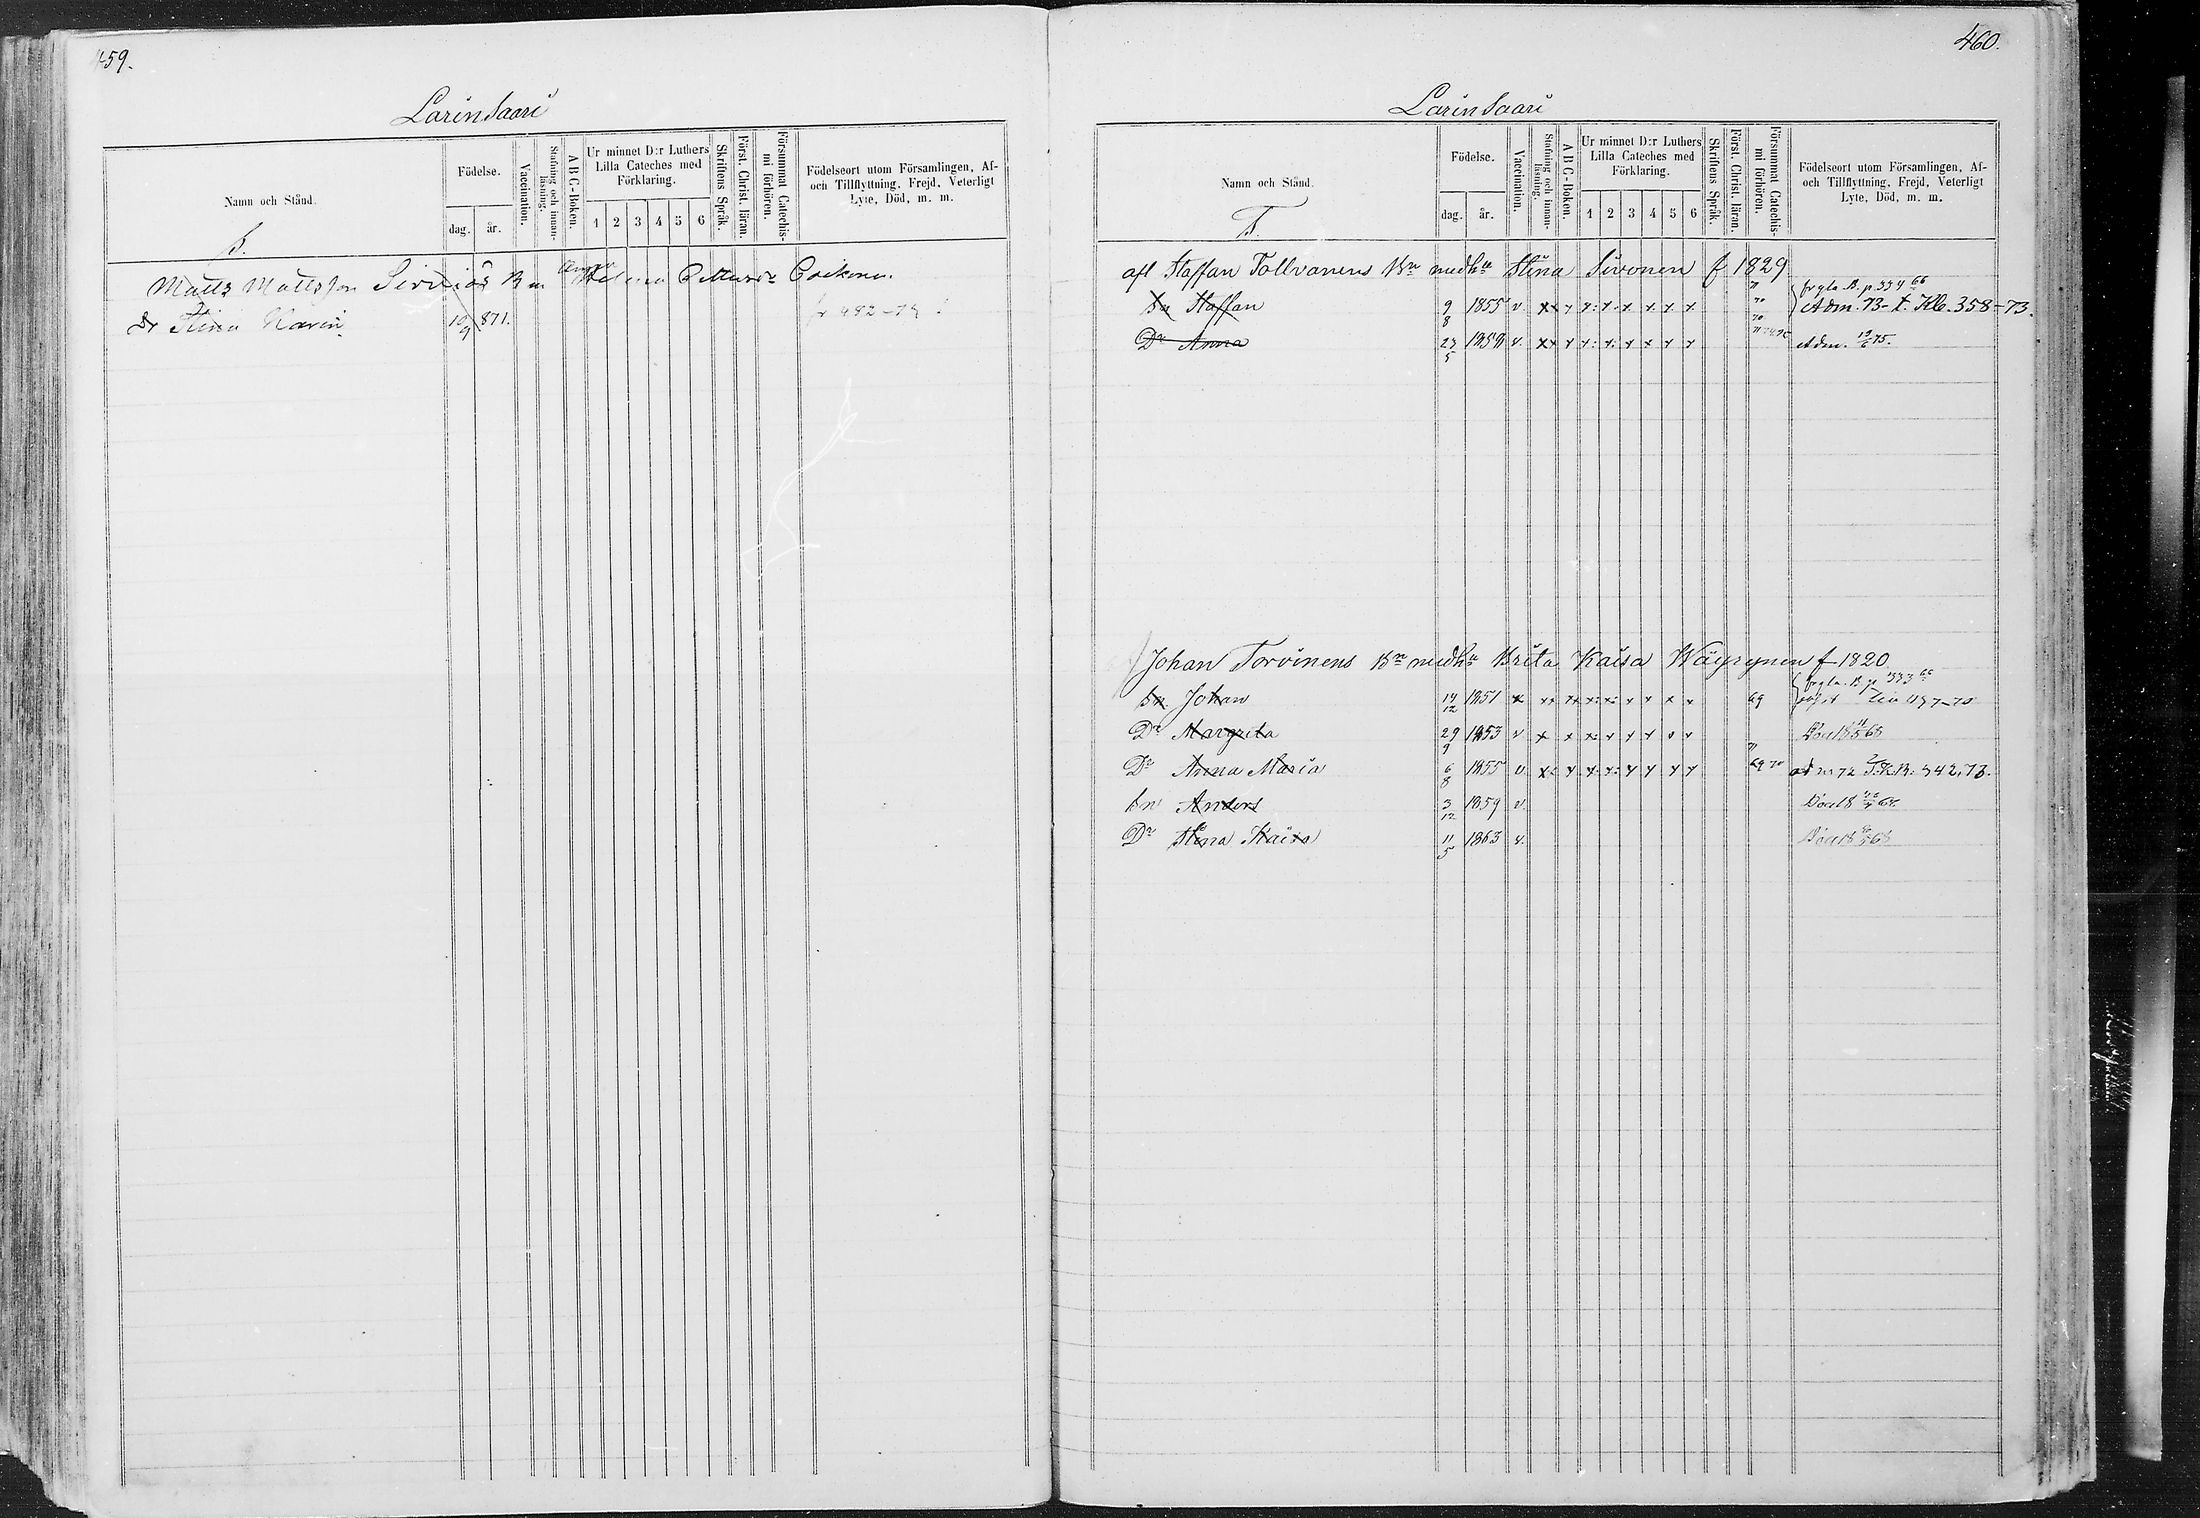 459.
Larinsaari
Namn och Stånd.
Födelse.
dag.
år.
Vaccination.
Stafning och innan-
läsning.
A B C-Boken.
Ur minnet D:r Luthers
Lilla Cateches med
Förklaring.
1 2 3 4 5 6
Skriftens Språk.
Först. Christ. läran.
Försummat Catechis-
mi förhören.
Födelseort utom Församlingen, Af-
och Tillflyttning, Frejd, Veterligt
Lyte, Död, m. m.
S.
Matts Mattsson Helena
Dr Stina Karin 10/9 871.
460.
Larinsaari
Namn och Stånd.
Födelse.
dag.
år.
Vaccination.
Stafning och innan-
läsning.
A B C-Boken.
Ur minnet D:r Luthers
Lilla Cateches med
Förklaring.
1 2 3 4 5 6
Skriftens Språk.
Först. Christ. läran.
Försummat Catechis-
mi förhören.
Födelseort utom Församlingen, Af-
och Tillflyttning, Frejd, Veterligt
Lyte, Död, m. m.
T.
afl Staffan Tollvanens Bn medh Stina Sivonen f 1829
Sn Staffan 9/8 1855 v. Adm. 73- t. Klb. 358-73.
Dr Anna 23/5 1859 v. Adm. 75.
Johan Torvinens Bn medh Brita Kaisa Wäyrynen f 1820
Sn Johan 14/12 1851 69
Dr Margreta 29/9 1853 v
Dr Anna Maria 6/8 1855 v. 69 70
Sn Anders 3/12 1859 v.
Dr Stina Kaisa 11/5 1863 v.